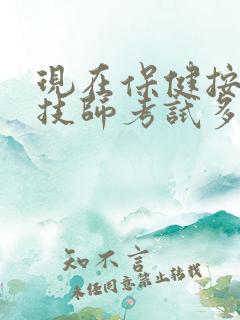 現在保健按
技師考試多
知不言
未任同意禁止转载